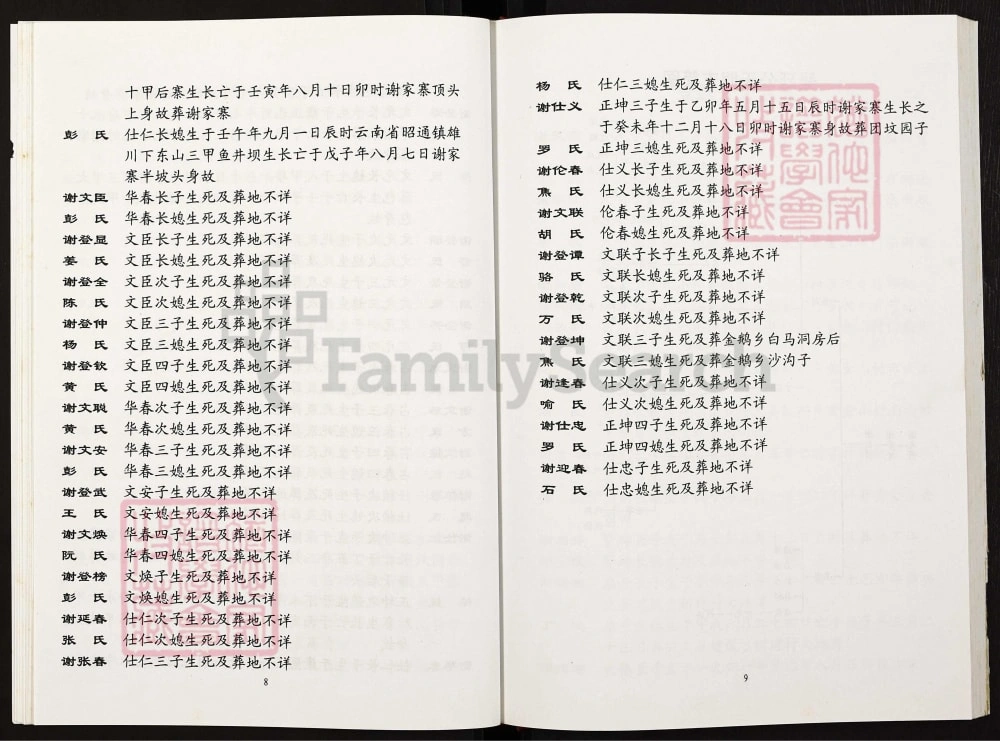 十甲后寨生长亡于壬寅年八月十日卯时谢家寨顶头
上身故葬谢家寨
彭 氏 仕仁长媳生于壬午年九月一日辰时云南省昭通镇雄
川下东山三甲鱼井坝生长亡于戊子年八月七日谢家
寨半坡头身故
谢文臣 华春长子生死及葬地不详
彭 氏 华春长媳生死及葬地不详
谢登显 文臣长子生死及葬地不详
姜 氏 文臣长媳生死及葬地不详
谢登全 文臣次子生死及葬地不详
陈 氏 文臣次媳生死及葬地不详
谢登仲 文臣三子生死及葬地不详
杨 氏 文臣三媳生死及葬地不详
谢登钦 文臣四子生死及葬地不详
黄 氏 文臣四媳生死及葬地不详
谢文聪 华春次子生死及葬地不详
黄 氏 华春次媳生死及葬地不详
谢文安 华春三子生死及葬地不详
彭 氏 华春三媳生死及葬地不详
谢登武 文安子生死及葬地不详
王 氏 文安媳生死及葬地不详
谢文焕 华春四子生死及葬地不详
阮 氏 华春四媳生死及葬地不详
谢登榜 文焕子生死及葬地不详
彭 氏 文焕媳生死及葬地不详
谢延春 仕仁次子生死及葬地不详
张 氏 仕仁次媳生死及葬地不详
谢张春 仕仁三子生死及葬地不详
8
杨 氏 仕仁三媳生死及葬地不详
谢仕义 正坤三子生于乙卯年五月十五日辰时谢家寨生长之
于癸未年十二月十八日卯时谢家寨身故葬团坟园子
罗 氏 正坤三媳生死及葬地不详
谢伦春 仕义长子生死及葬地不详
焦 氏 仕义长媳生死及葬地不详
谢文联 伦春子生死及葬地不详
胡 氏 伦春媳生死及葬地不详
谢登谭 文联子长子生死及葬地不详
骆 氏 文联长媳生死及葬地不详
谢登乾 文联次子生死及葬地不详
万 氏 文联次媳生死及葬地不详
谢登坤 文联三子生死及葬金鹅乡白马洞房后
焦 氏 文联三媳生死及葬金鹅乡沙沟子
谢逢春 仕义次子生死及葬地不详
喻 氏 仕义次媳生死及葬地不详
谢仕忠 正坤四子生死及葬地不详
罗 氏 正坤四媳生死及葬地不详
谢迎春 仕忠子生死及葬地不详
石 氏 仕忠媳生死及葬地不详
9
FamilySearch